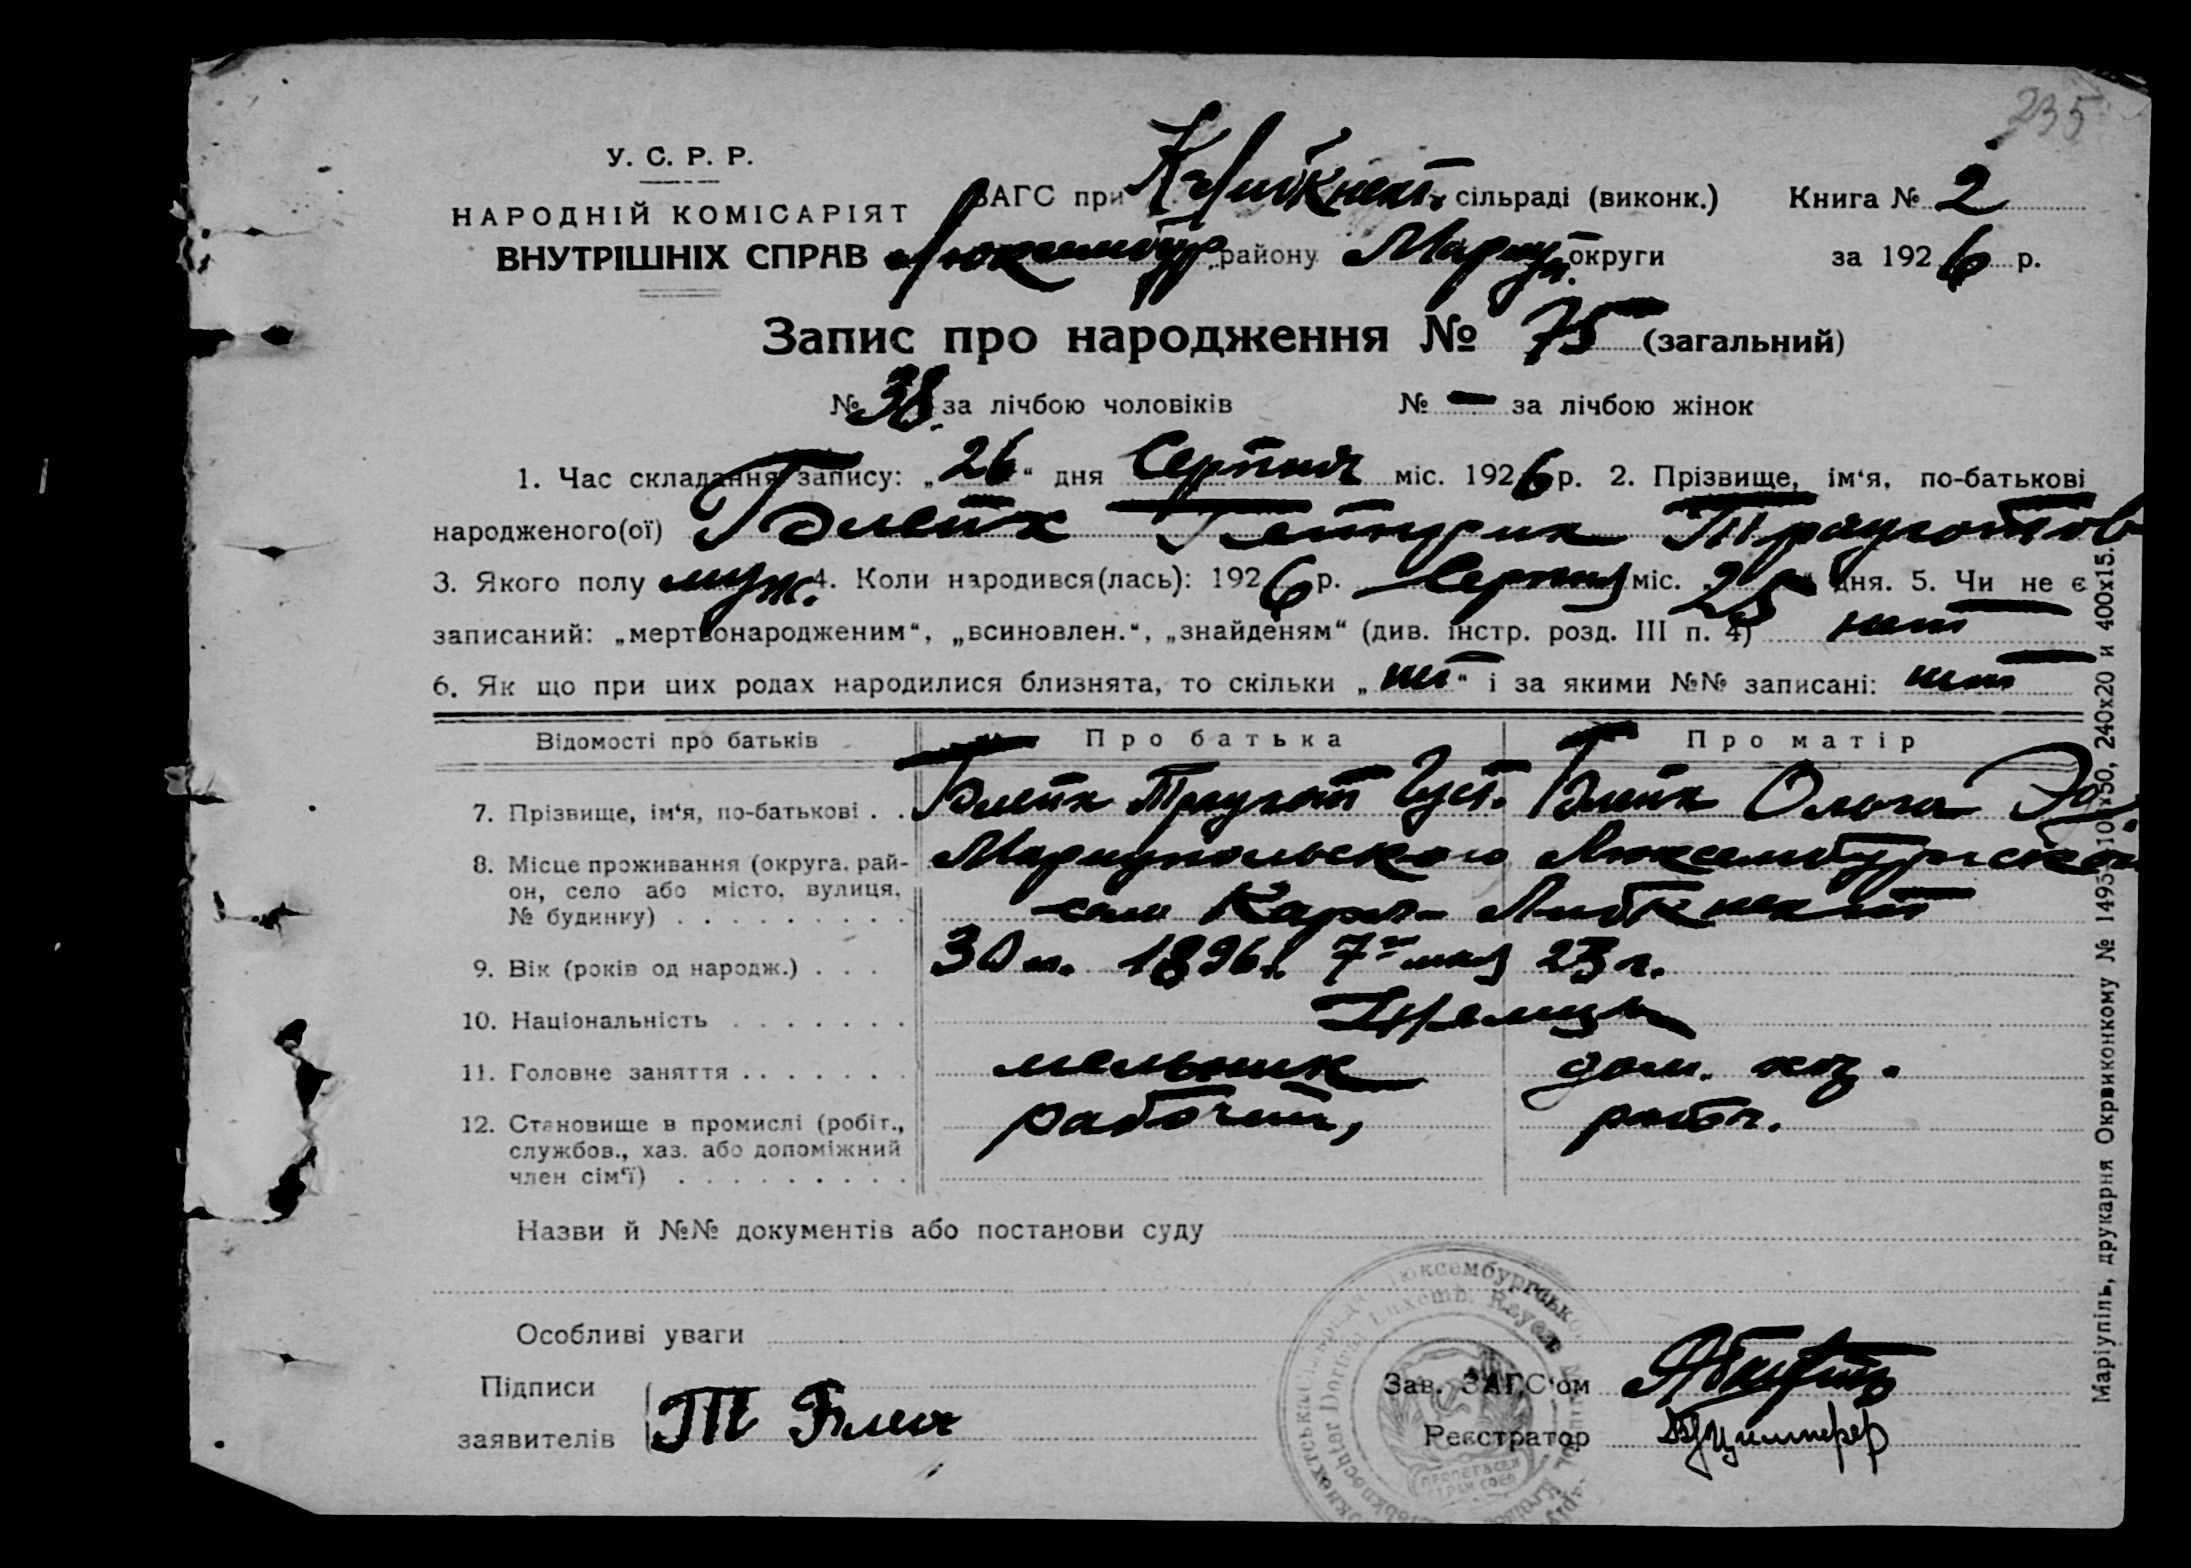 235
У. С. Р. Р.
НАРОДНІЙ КОМІСАРІЯТ
ВНУТРІШНІХ СПРАВ
ЗАГС при К Либкнехт. сільраді (виконк.) Книга № 2
Люксембур. району Мариуп. округи за 1926 р.
Запис про народження № 75 (загальний)
№ 38. за лічбою чоловіків № — за лічбою жінок
1. Час складання запису: „26“ дня Серпня міс. 1926 р. 2. Прізвище, ім‘я, по-батькові
народженого(ої) Блейх Гейнрих Трауготов
3. Якого полу муж. 4. Коли народився(лась): 1926 р. Серпня міс. „25“ дня. 5. Чи не є
записаний: „мертвонародженим“, „всиновлен.“, „знайденям“ (див. інстр. розд. III п. 4) нет
6. Як що при цих родах народилися близнята, то скільки „нет“ і за якими №№ записані: нет
Відомості про батьків Про батька Про матір
7. Прізвище, ім‘я, по-батькові . . Блейх Траугот Густ. Блейх Ольга
8. Місце проживання (округа, рай-
он, село або місто, вулиця,
№ будинку) . . . . . . . . .
Мариупольского Люксембургского
село Карл-Либкнехт
9. Вік (років од народж.) . . . 30 л. 1896 г. 7го мая 23 г.
10. Національність . . . . . . . Нъмець
11. Головне заняття . . . . . . . мельник дом. хоз.
12. Становище в промислі (робіт.,
службов., хаз. або допоміжний
член сім‘ї) . . . . . . . . .
рабочий, рабоч.
Назви й №№ документів або постанови суду
Особливі уваги
Підписи
заявителів
Т Блех
Зав. ЗАГС‘ом
Реєстратор
Маріупіль, друкарня Окрвиконкому № 1495
240х20 и 400х15.